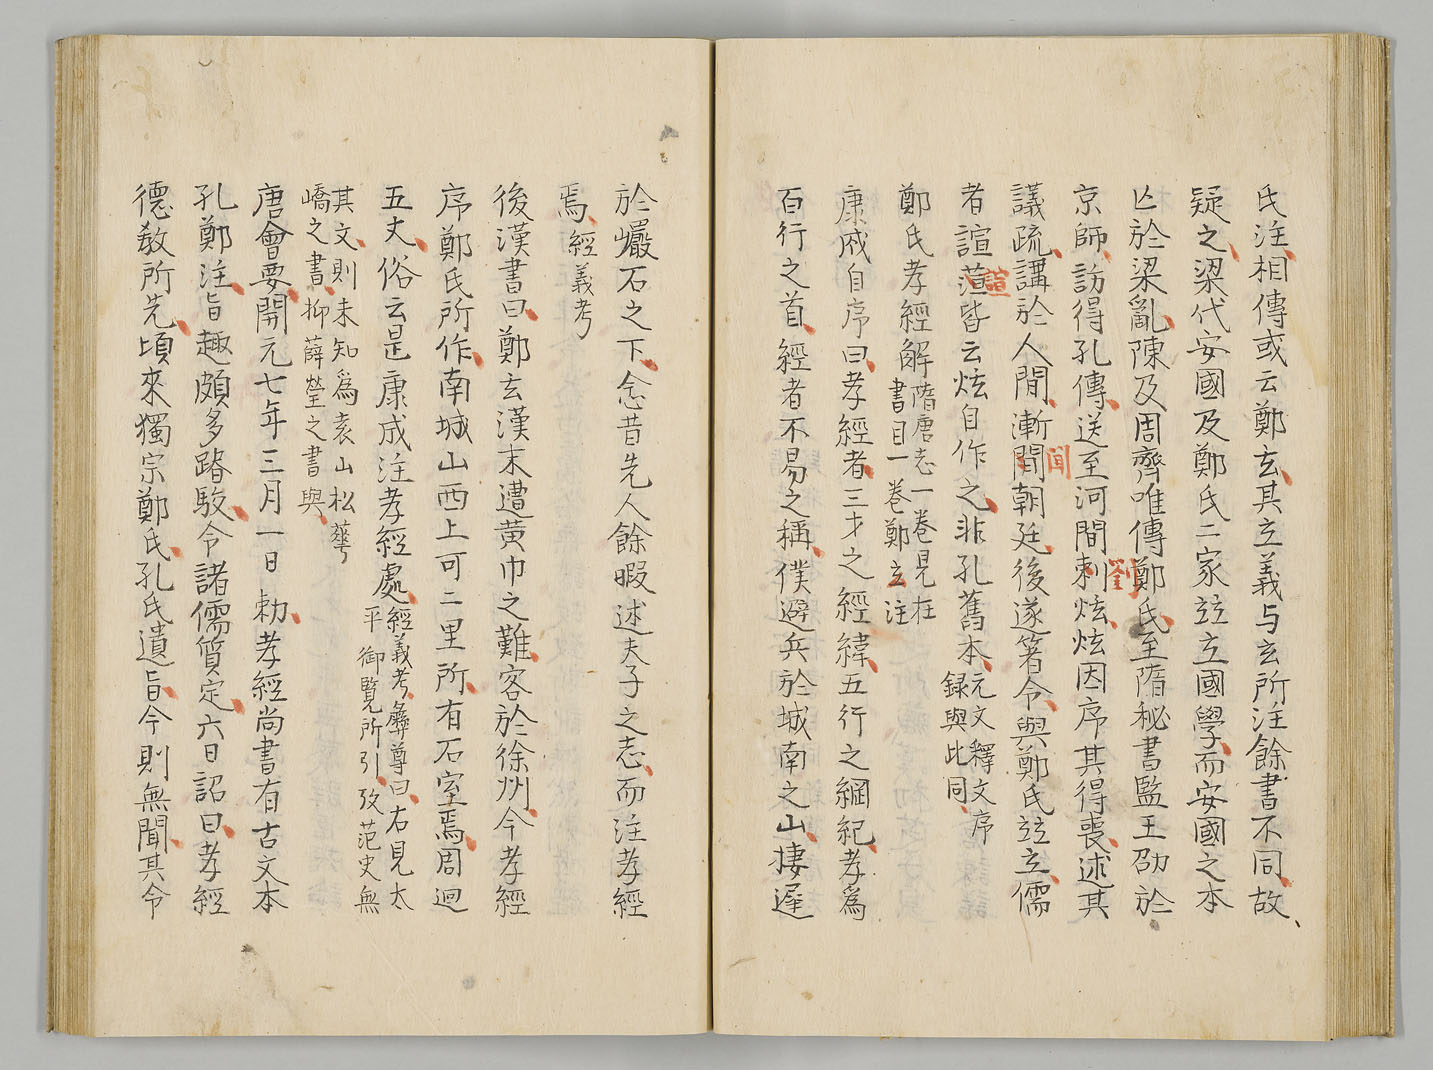 氏注相傳或云鄭玄其立義与玄所注餘書不同故
疑之梁代安國及鄭氏二家竝立國學而安國之本
亾於梁亂陳及周齊唯傳鄭氏至隋秘書監王劭於
劉
京師訪得孔傳送至河間刺炫炫因序其得喪述其
聞
議疏講於人間漸間朝廷後遂箸令與鄭氏竝立儒
諠
者諠薀皆云炫自作之非孔舊本元文釋文序
録與此同
鄭氏孝經解隋唐志一卷見在
書目一卷鄭玄注
康成自序曰孝經者三才之經緯五行之綱紀孝爲
百行之首經者不易之稱僕避兵於城南之山棲遲
於巖石之下念昔先人餘暇述夫子之志而注孝經
焉經義考
後漢書曰鄭玄漢末遭黄巾之難客於徐州今孝經
序鄭氏所作南城山西上可二里所有石室焉周迴
五丈俗云是康成注孝經處經義考彝尊曰右見太
平御覽所引攷范史無
其文則未知爲袁山松蕐
嶠之書抑薛瑩之書與
唐會要開元七年三月一日勅孝經尚書有古文本
孔鄭注旨趣頗多踳駮令諸儒質定六日詔曰孝經
德教所先頃來獨宗鄭氏孔氏遺旨今則無聞其令